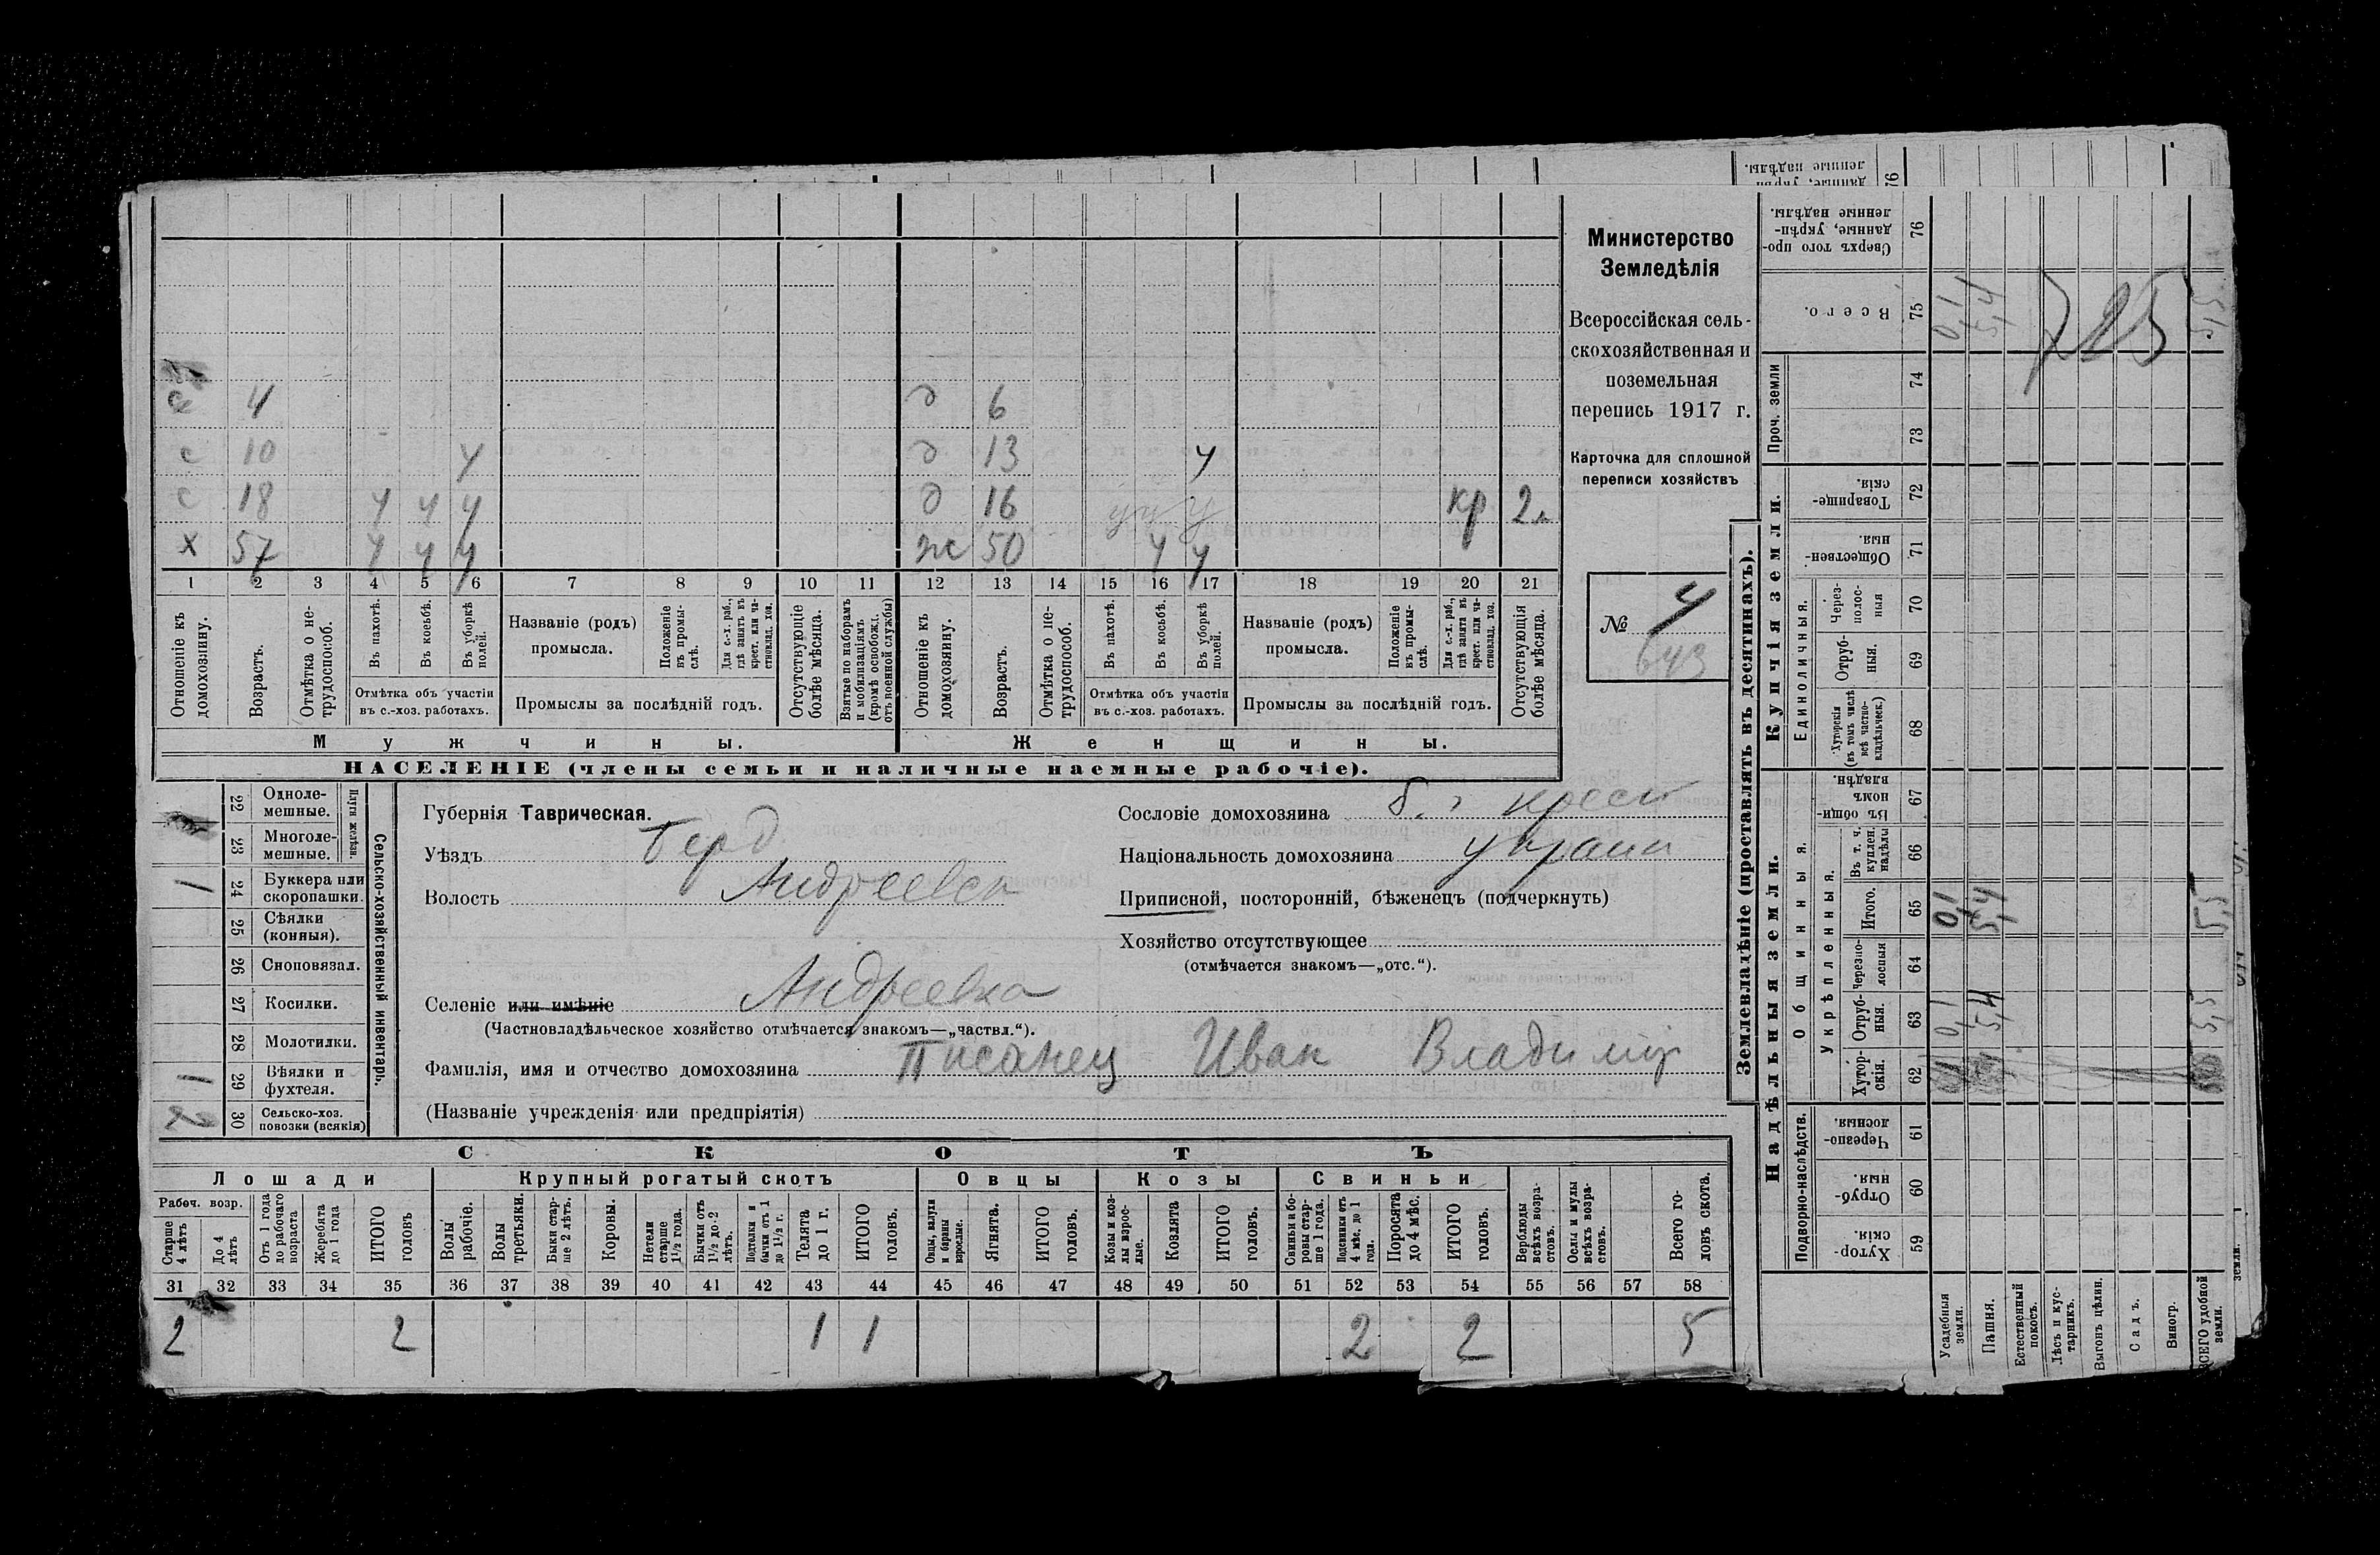 с 4 д 6
с 10 ч д 13 ч
с 18 ч ч ч д 16 кр 2 л
х 57 ч ч ч ж 50 ч ч
1 2 3 4 5 6 7 8 9 10 11 12 13 14 15 16 17 18 19 20 21
Отношеніе къ домохозяину.
Возрастъ.
Отмѣтка о не-трудоспособ.
Въ пахотѣ.
Въ косьбѣ.
Въ уборкѣ полей.
Отмѣтка объ участіи
въ с.-хоз. работахъ.
Названіе (родъ)
промысла.
Положеніе въ промы-слѣ.
Для с.-х. раб., гдѣ занятъ въ крест. или ча-стновлад. хоз.
Промыслы за послѣдній годъ.
Отсутствующіе болѣе мѣсяца.
Взятые по наборамъ и мобилизаціямъ (кромѣ освобожд. отъ военной службы)
Отношеніе къ домохозяину.
Возрастъ.
Отмѣтка о не-трудоспособ.
Въ пахотѣ.
Въ косьбѣ.
Въ уборкѣ полей.
Отмѣтка объ участіи
въ с.-хоз. работахъ.
Названіе (родъ)
промысла.
Положеніе въ промы-слѣ.
Для с.-х. раб., гдѣ занята въ крест. или ча-стновлад. хоз.
Промыслы за послѣдній годъ.
Отсутствующія болѣе мѣсяца.
Мужчины.
Женщины.
НАСЕЛЕНІЕ (члены семьи и наличные наемные рабочіе).
Министерство
Земледѣлія
Всероссійская сель-
скохозяйственная и
поземельная
перепись 1917 г.
Карточка для сплошной
переписи хозяйствъ
№ 4
643
Сельско-хозяйственный инвентарь.
Плуги желѣзн.
22 Одноле-мешные.
23 Многоле-мешные.
1 24 Буккера или скоропашки.
25 Сѣялки (конныя).
26 Сноповязал.
27 Косилки.
28 Молотилки.
1 29 Вѣялки и фухтеля.
2 30 Сельско-хоз. повозки (всякія)
Губернія Таврическая.
Уѣздъ Берд
Волость Андреевск
Селеніе или имѣніе Андреевка
(Частновладѣльческое хозяйство отмѣчается знакомъ—„частвл.“).
Фамилія, имя и отчество домохозяина Писанец Иван Владимір
(Названіе учрежденія или предпріятія)
Сословіе домохозяина б. крест
Національность домохозяина украин
Приписной, посторонній, бѣженецъ (подчеркнуть)
Хозяйство отсутствующее
(отмѣчается знакомъ—„отс.“).
СКОТЪ
Лошади Крупный рогатый скотъ Овцы Козы Свиньи
Рабоч. возр.
Старше 4 лѣтъ
До 4 лѣтъ
Отъ 1 года до рабочаго возраста
Жеребята до 1 года
ИТОГО головъ
Волы рабочіе.
Волы третьяки.
Быки стар-ше 2 лѣтъ.
Коровы.
Нетели старше 1½ года.
Бычки отъ 1½ до 2 лѣтъ.
Подтелки и бычки отъ 1 до 1½ г.
Телята до 1 г.
ИТОГО головъ.
Овцы, валухи и бараны взрослые.
Ягнята.
ИТОГО головъ.
Козы и коз-лы взрос-лые.
Козлята
ИТОГО головъ.
Свиньи и бо-ровы стар-ше 1 года.
Подсвинки отъ 4 мѣс. до 1 года.
Поросята до 4 мѣс.
ИТОГО головъ.
Верблюды всѣхъ возра-стовъ.
Ослы и мулы всѣхъ возра-стовъ.
Всего го-ловъ скота.
31 32 33 34 35 36 37 38 39 40 41 42 43 44 45 46 47 48 49 50 51 52 53 54 55 56 57 58
2 2 1 1 2 2 5
Землевладѣніе (проставлять въ десятинахъ).
Купчія земли.
Надѣльныя земли.
76 Сверхъ того про-данные, укрѣп-ленные надѣлы.
75 Всего. 0,1 5,4 5,5
725
Проч. земли
74
73
72 Товарище-скія.
71 Обществен-ныя.
Единоличныя.
70 Через-полос-ныя
69 Отруб-ныя.
68 Хуторскія (въ томъ числѣ всѣ частно-владѣльческ.)
Общинныя.
67 Въ общи-номъ владѣн.
Укрѣпленныя.
66 Въ т. ч. куплен. надѣлы
65 Итого. 0,1 5,4 5,5
64 Черезпо-лосныя
63 Отруб-ныя. 0,1 5,4 5,5
62 Хутор-скія.
Подворно-наслѣдств.
61 Черезпо-лосныя.
60 Отруб-ныя.
59 Хутор-скія.
Усадебныя земли.
Пашня.
Естественный покосъ.
Лѣсъ и кус-тарникъ.
Выгонъ цѣлин.
Садъ.
Виногр.
ВСЕГО удобной земли.